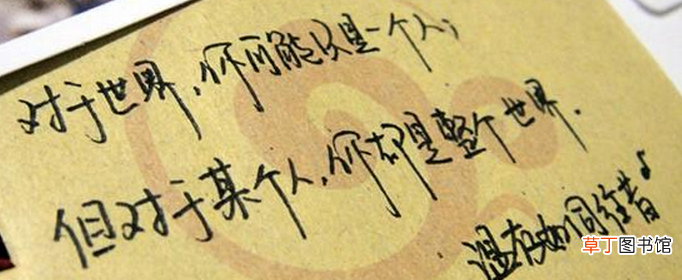 对于世界，你可能只是一个人；
但对于某个人，你却是整个世界．
温存如同往昔♪
草丁图书馆